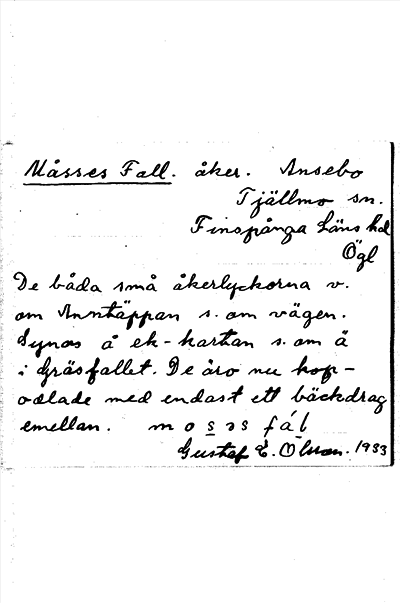 Måsses Fall. åker. Ansebo
Tjällmo sn.
Finspånga Läns hd
Ögl
De båda små åkerlyckorna v.
om Anntäppan s. om vägen.
Synas å ek-kartan s. om ä
i Gräsfallet. De äro nu hop-
odlade med endast ett bäckdrag
emellan. mos̲əs fál̲
Gustaf E. Olsson. 1933